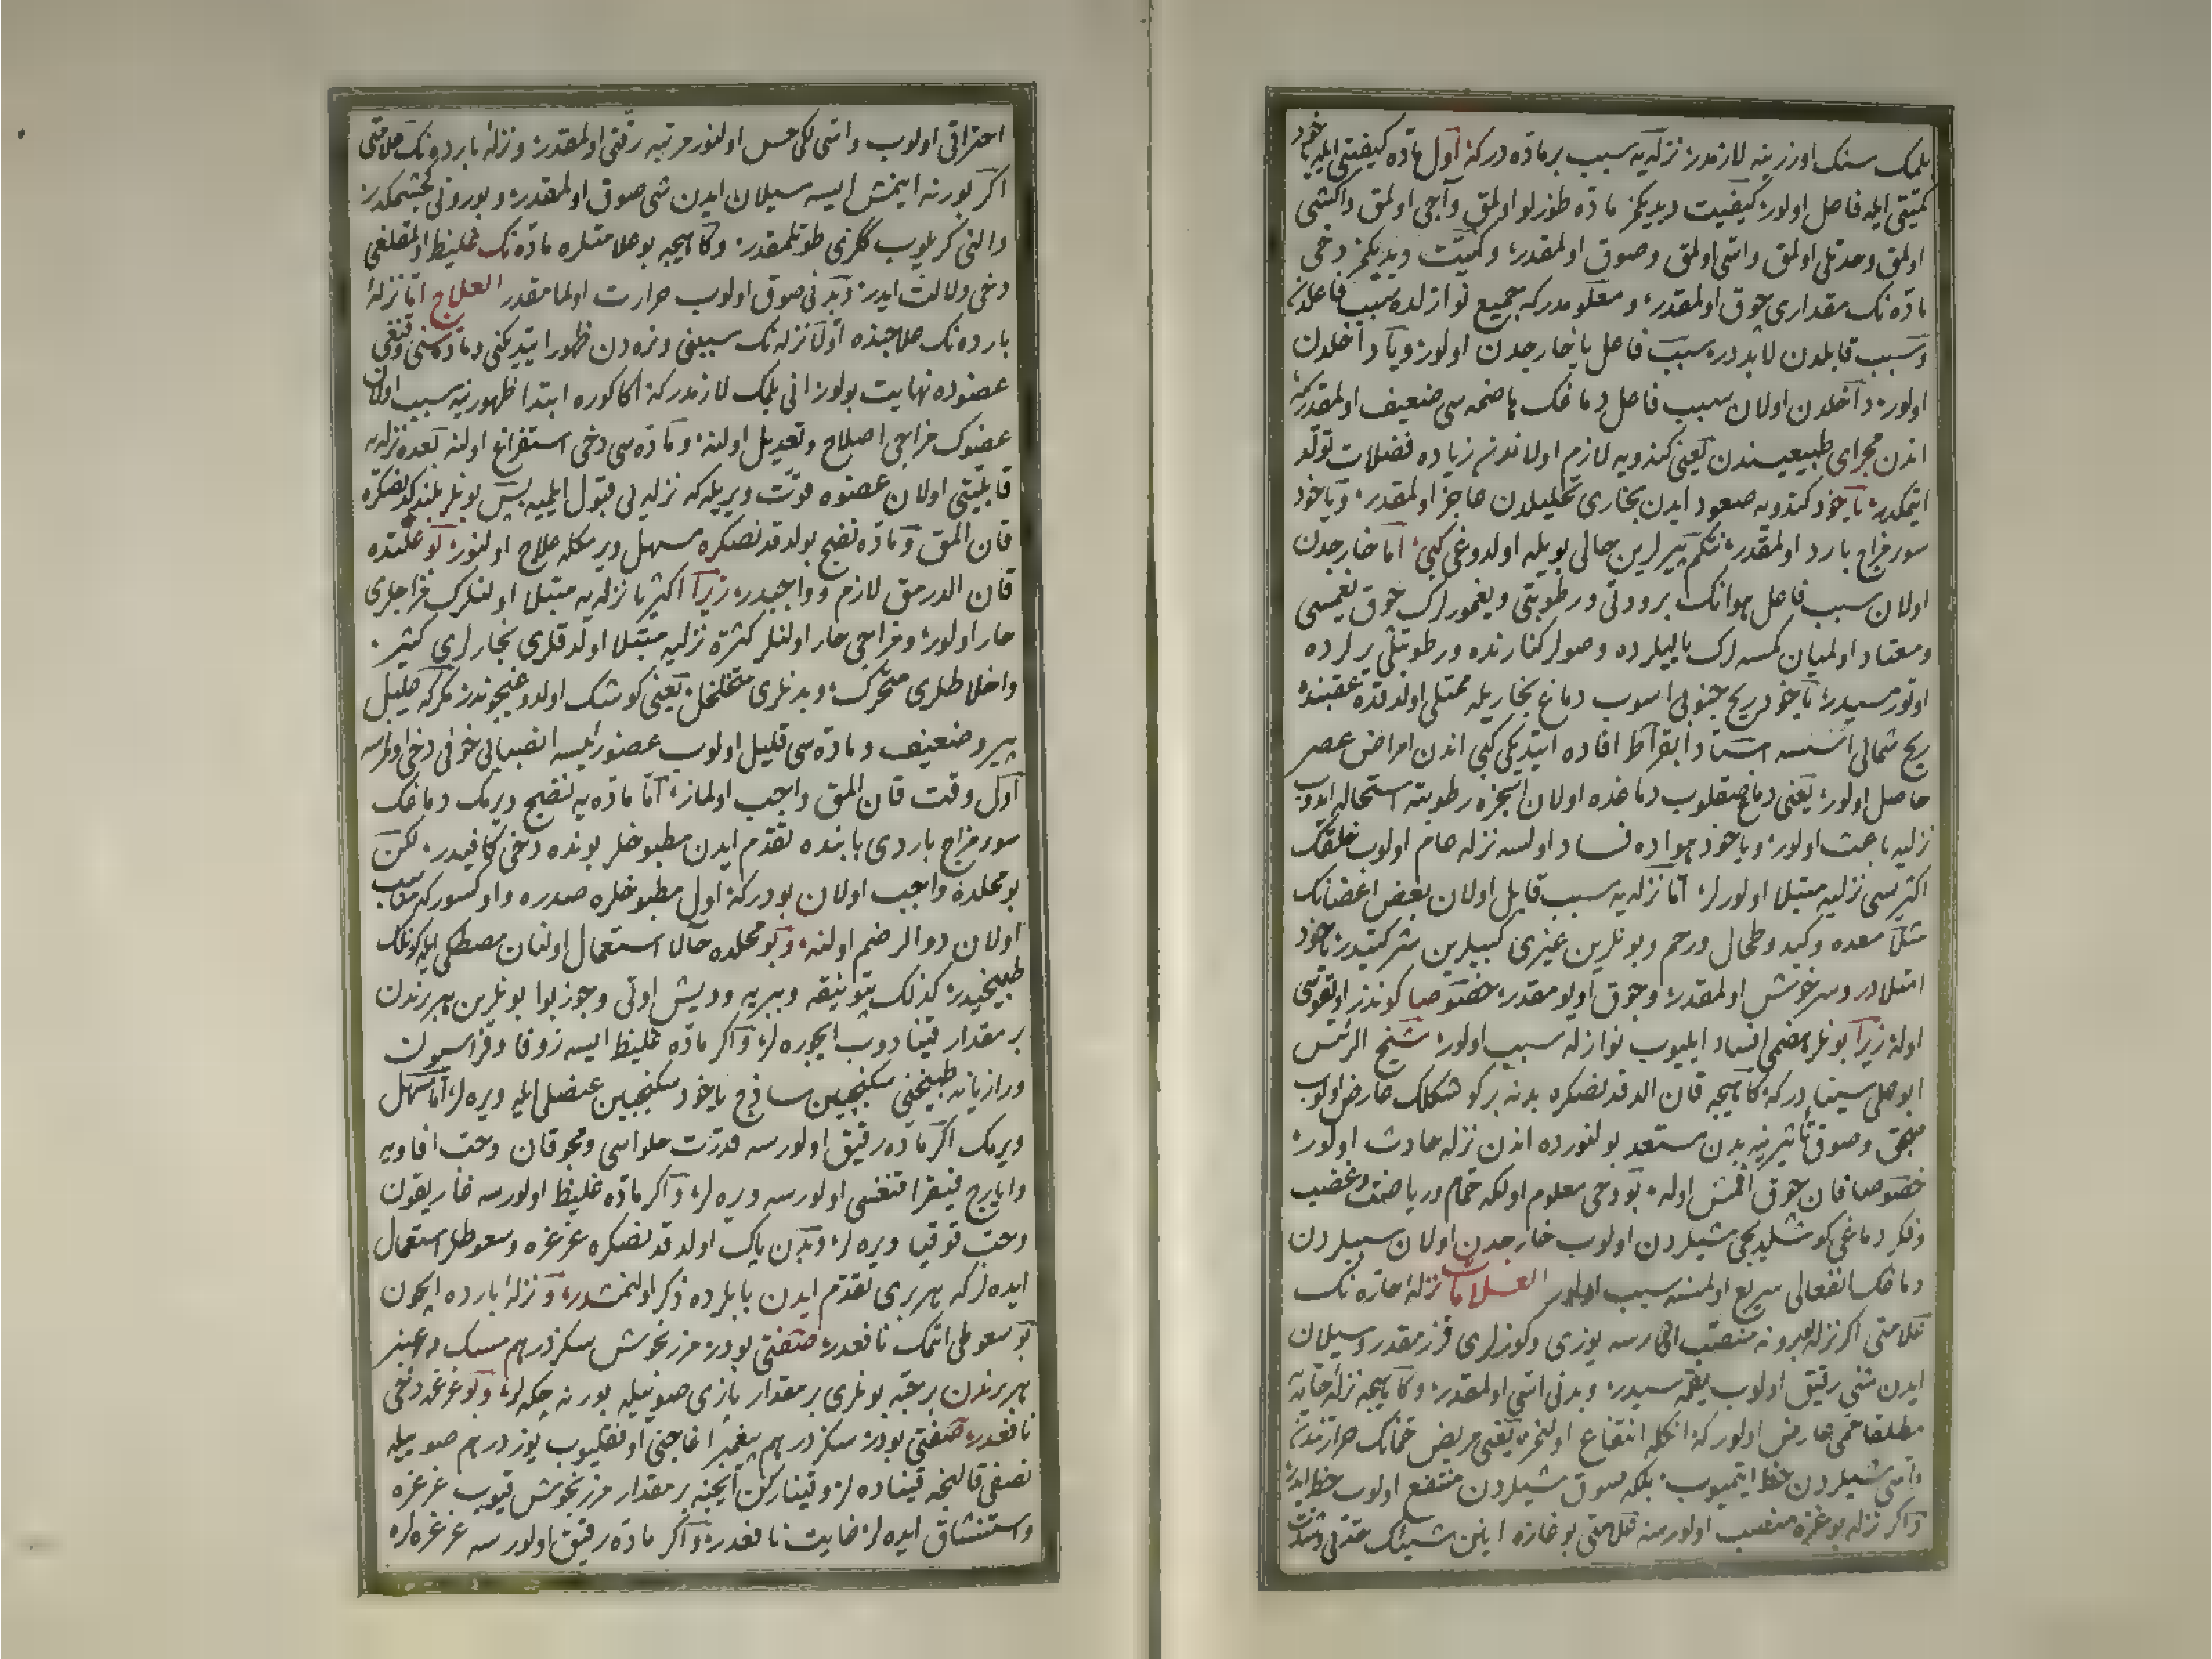 بلمك سنك اوزرينه لازمدر نزله يه سبب بر ماده در كه اول ماده كيفيتى ايله ياخود
كميتى ايله فاعل اولور كيفيت ديديكمز ماده طوزلو اولمق وآجى اولمق واكشى
اولمق وحدتلى اولمق واسى اولمق وصوق اولمقدر وكميت ديديكمز دخى
ماده نك مقدارى چوق اولمقدر ومعلومدركه جميع نوازلده سبب فاعلدن
وسبب قابلدن لابددر سبب فاعل يا خارجدن اولور ويا داخلدن
اولور داخلدن اولان سبب فاعل دماغك هاضمه سى ضعيف اولمقدركه
اندن مجراى طبيعيسندن يعنى كندويه لازم اولاندن زياده فضلات تولد
ايتمكدر ياخود كندويه صعود ايدن بخارى تحليلدن عاجز اولمقدر وياخود
سوء مزاج بارد اولمقدر نتكم پيرلرين حالى بويله اولدوغى كبى اما خارجدن
اولان سبب فاعل هوانك برودتى ورطوبتى ويغمورلرك چوق يغمسى
ومعتاد اولميان كمسه لرك ياييلرده وصولر كنارنده ورطوبتلى يرلرده
اوتورمسيدر ياخود ريح جنوبى اسوب دماغ بخاريله ممتلى اولدقده عقبنده
ريح شمالى اسسه استاد ابقراط افاده ايتديكى كبى اندن امراض عصر
حاصل اولور يعنى دماغ صقلوب دماغده اولان ابخره رطوبته استحاله ايدوب
نزليه باعث اولور وياخود هواده فساد اولسه نزله عام اولوب خلقك
اكثرسى نزليه مبتلا اولورلر اما نزله يه سبب قابل اولان بعض اعضانك
مثلا معده وكبد وطحال ورحم وبونلرين غيرى كبيلرين شركتيدر ياخود
امتلادر وسرخوش اولمقدر وچوق اويومقدر خصوصا كوندز اويقوسى
اوله زيرا بونلر هضمى افساد ايليوب نوازله سبب اولور شيخ الرئيس
ابو على سينا دركه كاهيجه قان الدقدنصكره بدنه بركوشكلك عارض اولوب
وصوق تأثيرينه بدن مستعد بولنورده اندن نزله حادث اولور
خصوصا قان چوق اقمش اوله بو دخى معلوم اولكه حمام ورياضت وغضب
وفكر دماغى كوشلديجى شيلردن اولوب خارجدن اولان سببلردن
دماغك انفعالى سريع اولمسنه سبب اولور العلامات نزلۀ حاره نك
علامتى اكر نزله بورونه منصب اولورسه يوزى وكوزلرى قزرمقدر وسيلان
ايدن شى رقيق اولوب يقمه سيدر وبدنى اسى اولمقدر وكاهيجه نزلۀ حاره يه
مطلقا حمى عارض اولور كه انكله انتفاع اولنمز يعنى مريض حمانك حرارتندن
واسى شيلردن حظ ايتميوب بلكه صوق شيلردن منتفع اولوب حظ ايدر
واكر نزله بوغزه منصب اولورسه علامتى بوغازه اينن شيئك حدتى وشدت
احتراقى اولوب واسى لكى حس اولنور مرتبه رقتى اولمقدر ونزلۀ بارده نك علامتى
اكر بورنه ايتمش ايسه سيلان ايدن شى صوق اولمقدر وبورونى كجشمكدر
والنى كريلوب كلزى طوتلمقدر وكاهيجه بو علامتلره ماده نك غليظ اولمقلغى
دخى دلالت ايدر وبدنى صوق اولوب حرارت اولمامقدر العلاج اما نزلۀ
بارده نك علاجنده اولا نزله نك سببنى ونره دن ظهور ايتديكنى وماده سنى وقنغى
عضوده نهايت بولور انى بلمك لازمدركه اكا كوره ابتدا ظهورينه سبب اولان
عضوك مزاجى اصلاح وتعديل اولنه وماده سى دخى استفراغ اولنه بعده نزله يه
قابليتى اولان عضوه قوت ويريله كه نزله يى قبول ايلميه پس بونلر بلندكدنصكره
قان المق وماده نضج بولدقدنصكره مسهل ويرمكله علاج اولنور بو علتده
قان الدرمق لازم وواجبدر زيرا اكثريا نزله يه مبتلا اولنلرك مزاجلرى
حار اولور ومزاجى حار اولنلر كثرة نزليه مبتلا اولدقلرى بخارلرى كثير
واخلاطلرى متحرك وبدنلرى متخلخل يعنى كوشك اولدوغيچوندر مكركه عليل
پير وضعيف وماده سى قليل اولوب عضو رئيسه انصبابى خوفى دخى اولمرسه
اول وقت قان المق واجب اولماز اما ماده يه نضج ويرمك دماغك
سوء مزاج باردى بابنده تقدم ايدن مطبوخلر بونده دخى كافيدر لكن
بو محلده واجب اولان بودركه اول مطبوخلره صدره واوكسوركه مناسب
اولان دوالر ضم اولنه وبو محلده حالا استعمال اولنان مصطكى ايله كونلك
طبيخيدر كذلك بتوانيقه وبيريه وديش اوتى وجوز بوا بونلرين هربرندن
بر مقدار قينادوب ايچوره لر واكر ماده غليظ ايسه زوفا وفراسيون
ورازيانه طبيخنى سكنجبين ساذج ياخود سكنجبين عنصلى ايله ويره لر اما مسهل
ويرمك اكر ماده رقيق اولورسه قدرت حلواسى ومحروقان وحب افاويه
وايارج فيقرا قنغسى اولورسه ويره لر واكر ماده غليظ اولورسه غاريقون
وحب قوقيا ويره لر وبدن پاك اولدقدنصكره غرغره وسعوطلر استعمال
ايده لركه هربرى تقدم ايدن بابلرده ذكر اولنمشدر ونزلۀ بارده ايچون
بو سعوطى اتمك نافعدر صفتى بودر مرزنخوش سكز درهم مسك وعنبر
هربرندن بر حبه بونلرى بر مقدار يازى صوييله بورنه چكه لر وبو غرغره دخى
نافعدر صفتى بودر سكز درهم پيغمبر اغاجنى اوفقليوب يوز درهم صوييله
نصفى قالنجه قيناده لر وقيناركن ايچنه بر مقدار مرزنخوش قيوب غرغره
واستنشاق ايده لر غايت نافعدر واكر ماده رقيق اولورسه غرغره لره